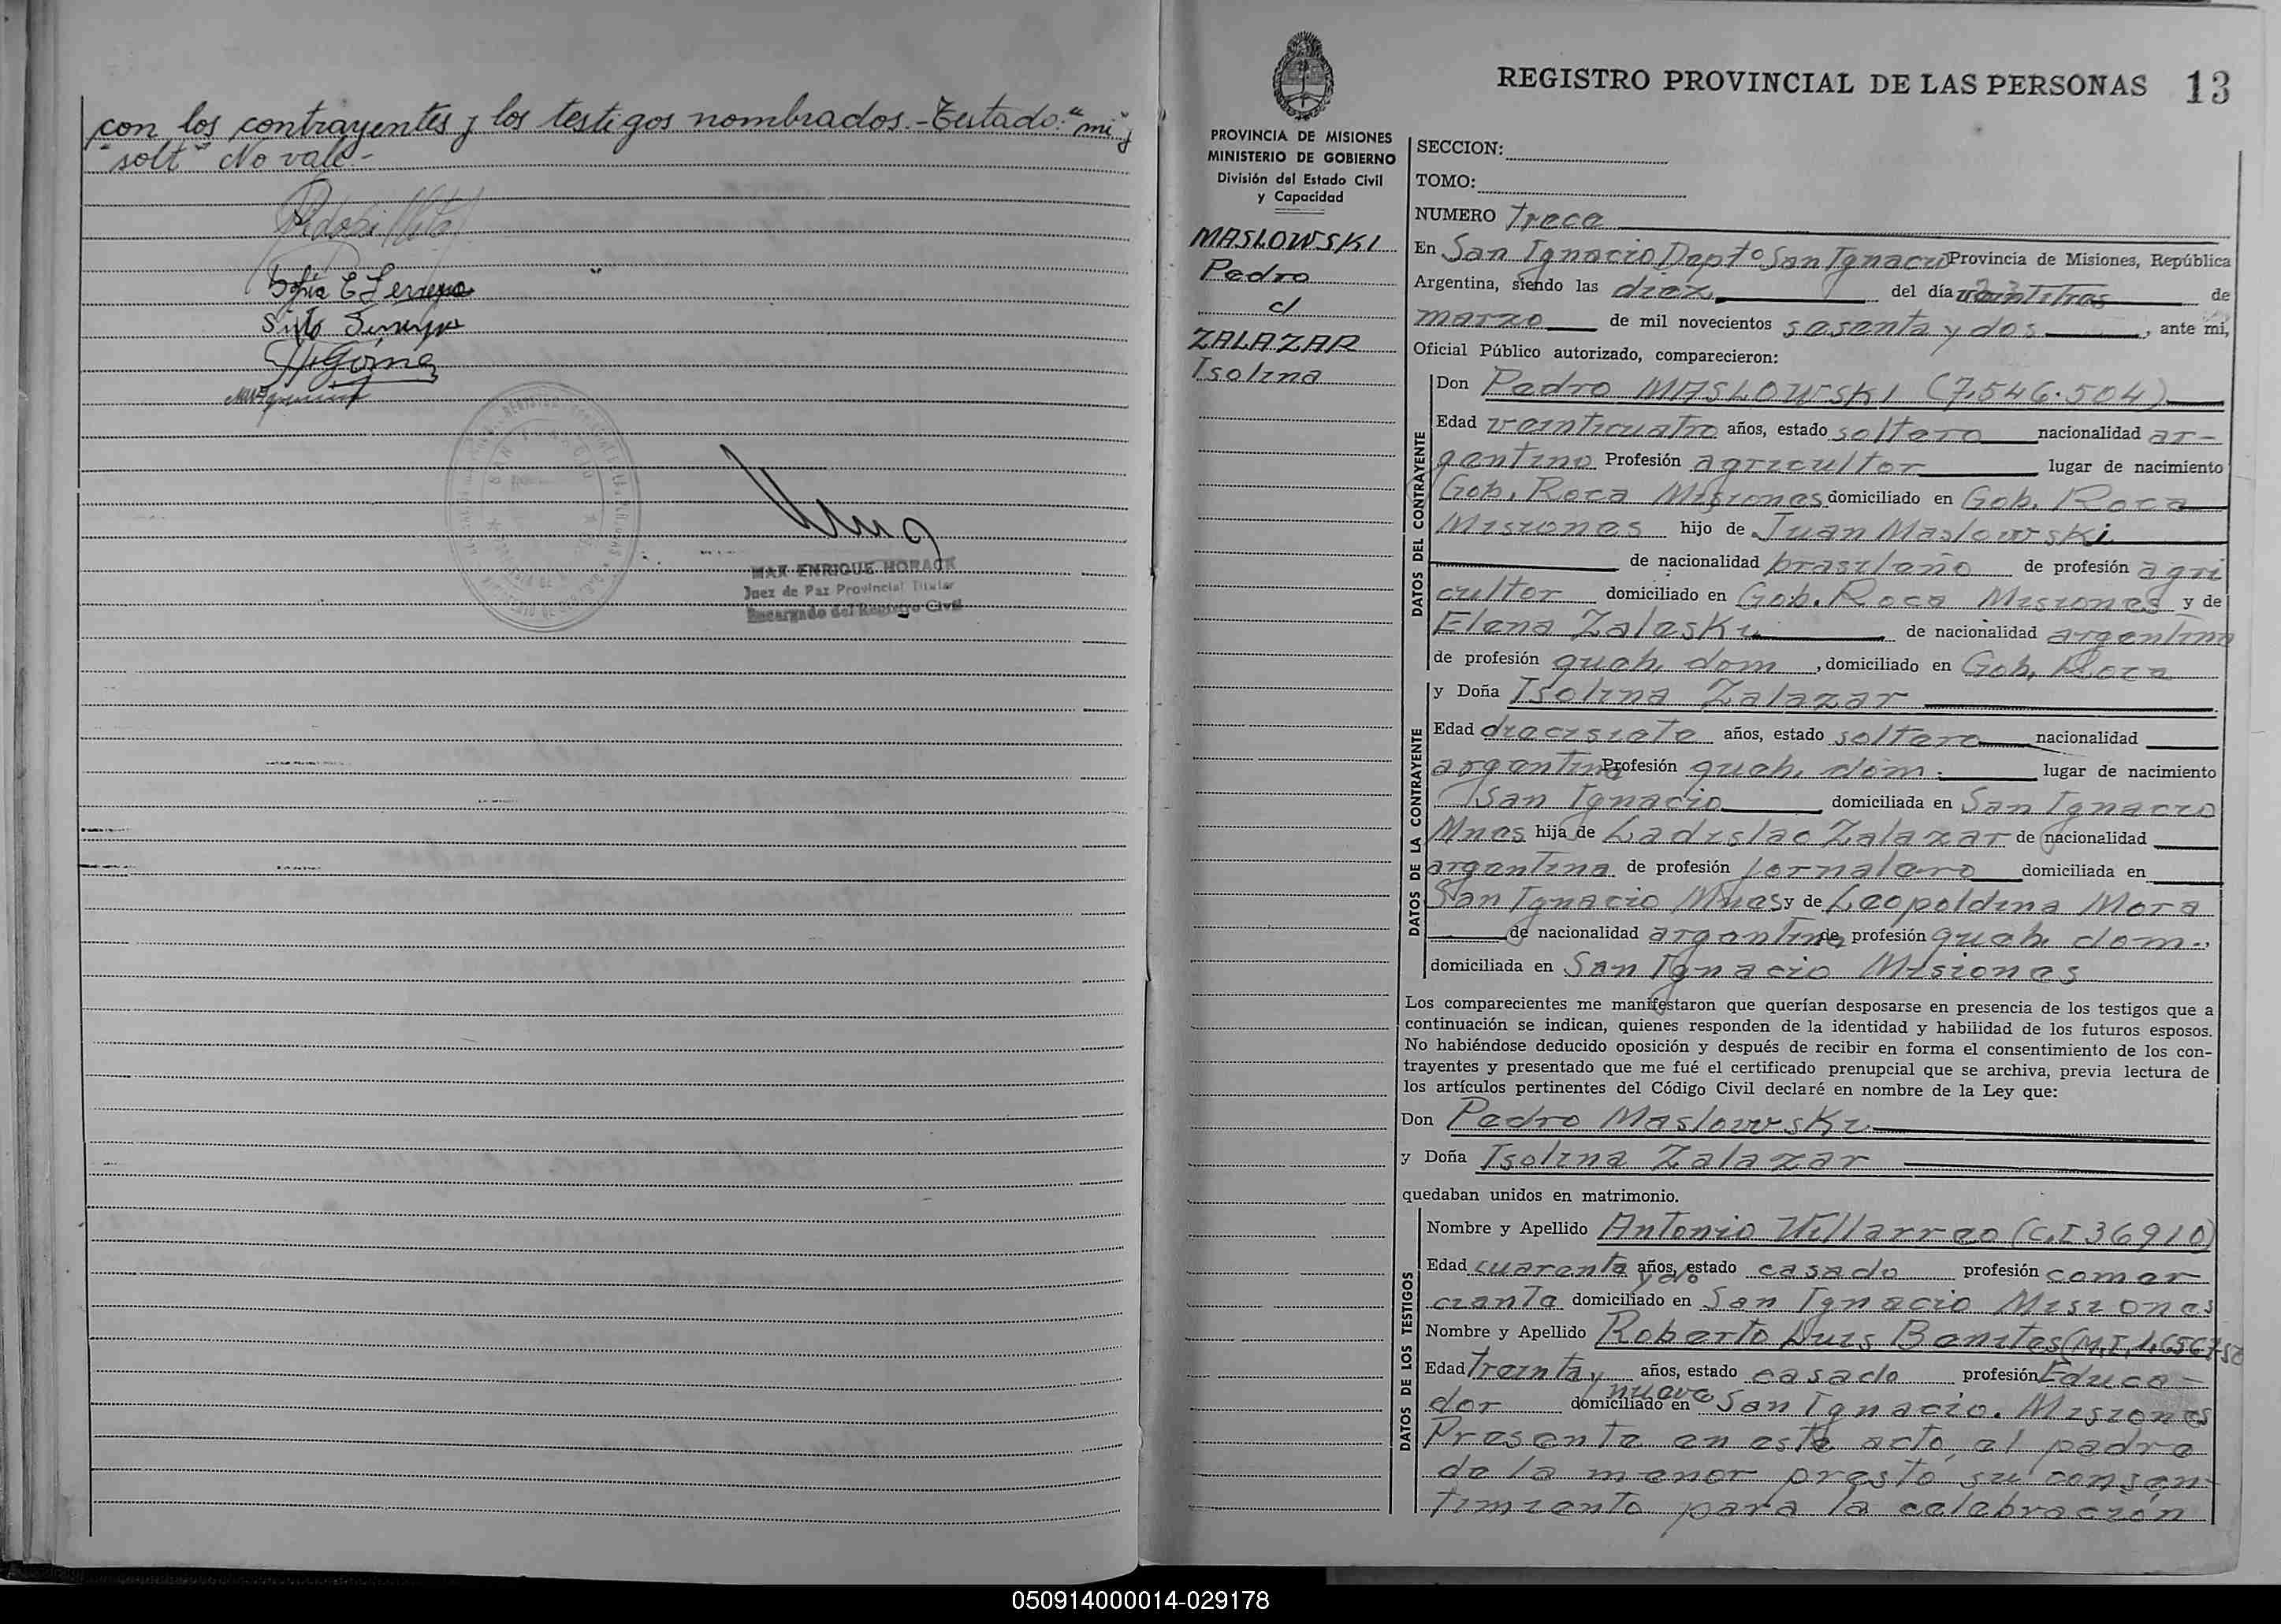 con los contrayentes y los testigos nombrados.- Testado: "mi" y
"solt" No vale.-
Sofía E Ferreyra
Sixto Ferreyra
MAX ENRIQUE HORACK
Juez de Paz Provincial Titular
Encargado del Registro Civil
REGISTRO PROVINCIAL DE LAS PERSONAS 13
PROVINCIA DE MISIONES
MINISTERIO DE GOBIERNO
División del Estado Civil
y Capacidad
MASLOWSKI
Pedro
c/
ZALAZAR
Isolina
SECCION:
TOMO:
NUMERO Trece
En San Ignacio Depto San Ignacio Provincia de Misiones, República
Argentina, siendo las diez del día veintitres de
marzo de mil novecientos sesenta y dos, ante mi,
Oficial Público autorizado, comparecieron:
DATOS DEL CONTRAYENTE
Don Pedro MASLOWSKI (7.546.504)
Edad veinticuatro años, estado soltero nacionalidad ar-
gentino Profesión agricultor lugar de nacimiento
Gob. Roca Misiones domiciliado en Gob. Roca
Misiones hijo de Juan Maslowski
de nacionalidad brasileño de profesión agri
cultor domiciliado en Gob. Roca Misiones y de
Elena Zaleski de nacionalidad argentina
de profesión queh. dom, domiciliado en Gob. Roca
DATOS DE LA CONTRAYENTE
y Doña Isolina Zalazar
Edad diecisiete años, estado soltera nacionalidad
argentina Profesión queh. dom. lugar de nacimiento
San Ignacio domiciliada en San Ignacio
Mnes hija de Ladislao Zalazar de nacionalidad
argentina de profesión Jornalero domiciliada en
San Ignacio Mnes y de Leopoldina Mora
de nacionalidad argentina de profesión queh. dom.,
domiciliada en San Ignacio Misiones
Los comparecientes me manifestaron que querían desposarse en presencia de los testigos que a
continuación se indican, quienes responden de la identidad y habilidad de los futuros esposos.
No habiéndose deducido oposición y después de recibir en forma el consentimiento de los con-
trayentes y presentado que me fué el certificado prenupcial que se archiva, previa lectura de
los artículos pertinentes del Código Civil declaré en nombre de la Ley que:
Don Pedro Maslowski
y Doña Isolina Zalazar
quedaban unidos en matrimonio.
DATOS DE LOS TESTIGOS
Nombre y Apellido Antonio Villarreo (C.I 36910)
Edad cuarenta y do años, estado casado profesión comer
ciante domiciliado en San Ignacio Misiones
Nombre y Apellido Roberto Luis Benites (M.I.
Edad Treinta y nueve años, estado casado profesión Educa-
dor domiciliado en San Ignacio. Misiones
Presente en este acto, el padre
de la menor prestó su consen-
timiento para la celebración
050914000014-029178